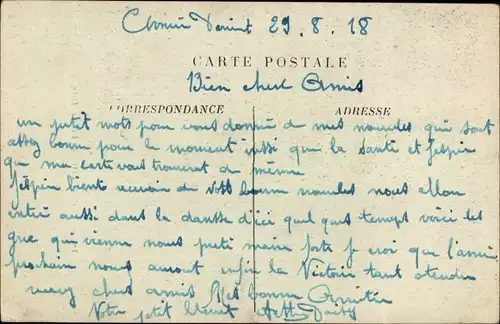 29.8.18
CARTE POSTALE
Bien cher Amis
CORRESPONDANCE ADRESSE
un petit mots pour vous donné de mes nouvelles qui sont
assez bonne pour le moment aussi que la santé et j'espère
que ma carte vous trouverat de même
J'espère bientô recevoir de vos bonne nouvelles nous allon
entré aussi dans la dansse d'ici quel ques temps voici les
que qui vienne nous preté main forte je croi que l'année
prochain nous auront enfin la Victoire tant atendu
recevez chers amis mes bonne Amitié
Votre ptit bleuet